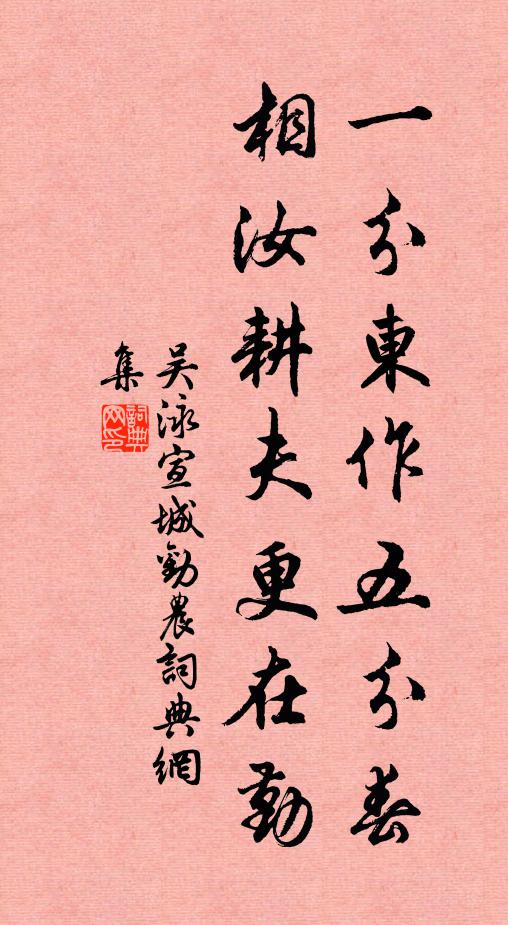 一分東作五分春
相汝耕夫更在勤
吴泳宣城勸農詞典網
集
詞典網印